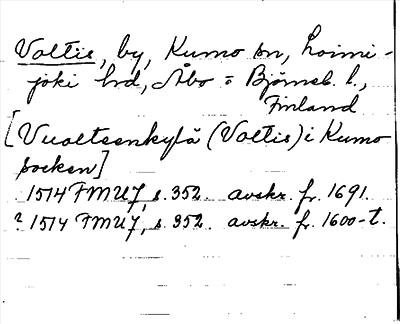 Voltis, by, Kumo sn, Loimi-
joki hd, Åbo = Björneb. l.,
Finland
[Vuoltsenkylä (Voltis) i Kumo
socken]
1514 FMU7, s. 352. avskr. fr. 1691.
? 1514 FMU7, s. 352. avskr. fr. 1600-t.